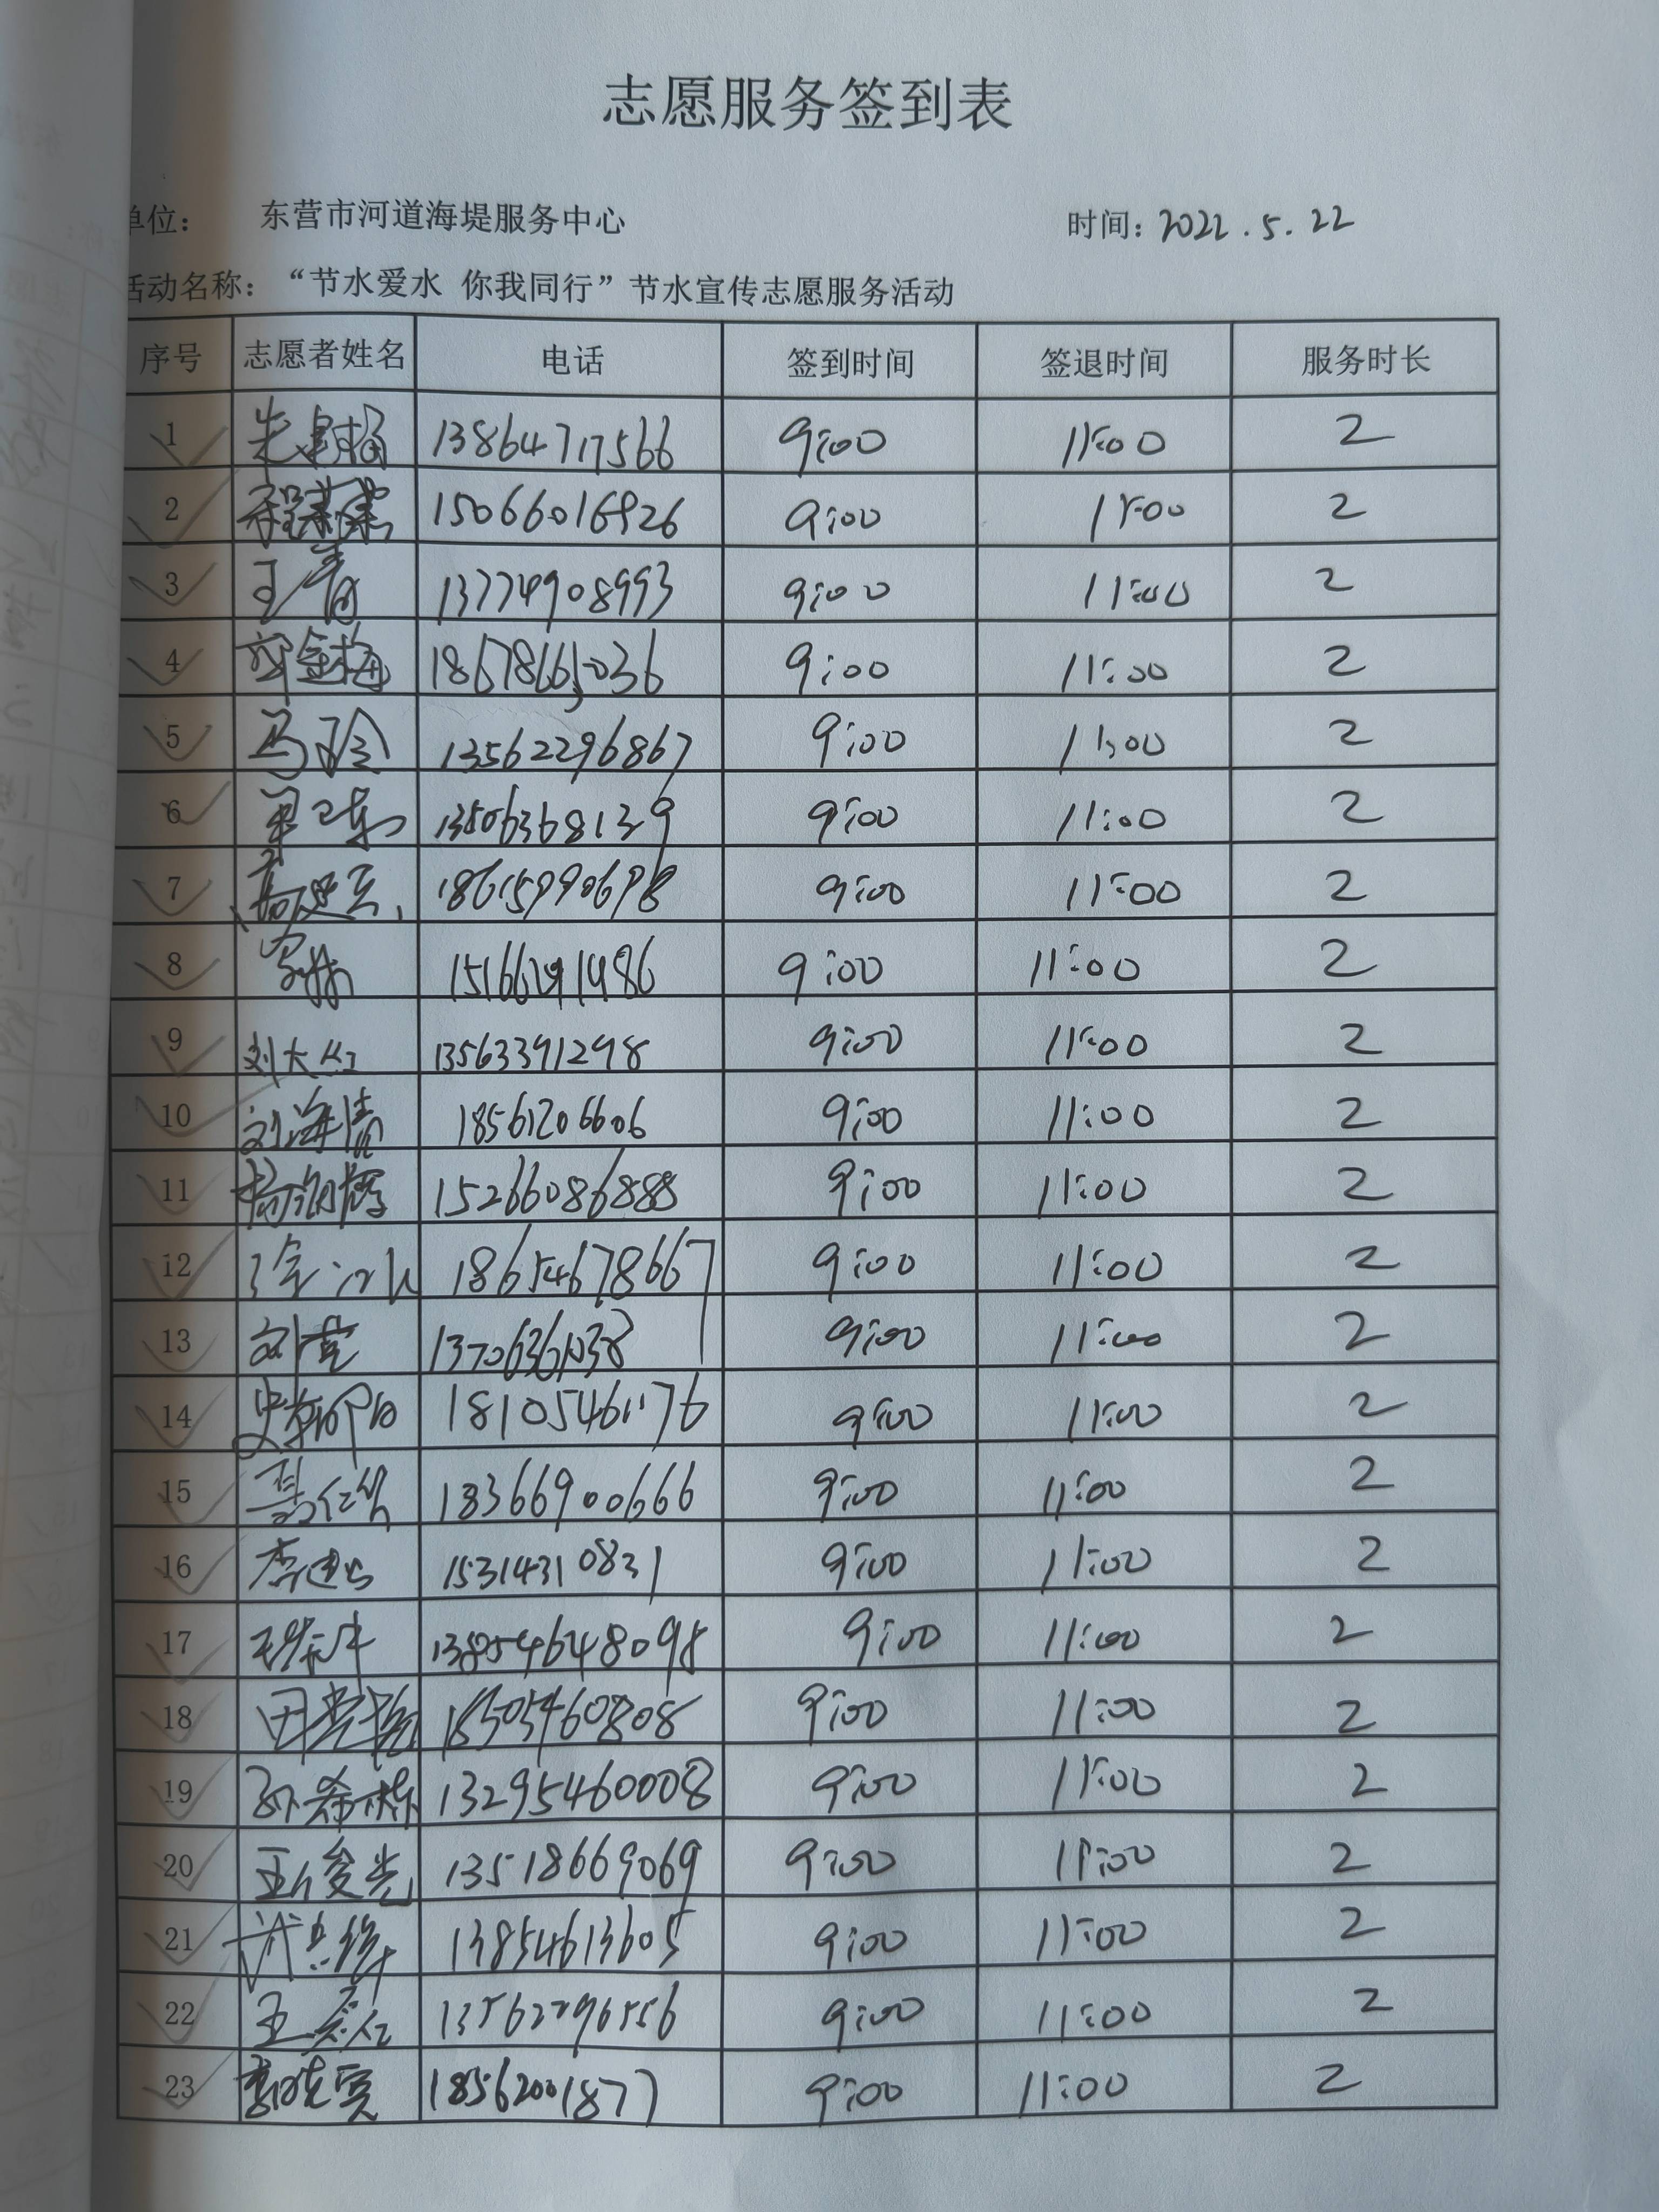 志愿服务签到表
单位： 东营市河道海堤服务中心 时间：2022.5.22
活动名称：“节水爱水 你我同行”节水宣传志愿服务活动
序号 志愿者姓名 电话 签到时间 签退时间 服务时长
1 13864717566 9:00 11:00 2
2 15066016926 9:00 11:00 2
3 王青 13774908993 9:00 11:00 2
4 18678665036 9:00 11:00 2
5 马玲 13562296867 9:00 11:00 2
6 13506368139 9:00 11:00 2
7 18615990698 9:00 11:00 2
8 9:00 11:00 2
9 刘大红 13563391298 9:00 11:00 2
10 刘海清 18561206606 9:00 11:00 2
11 15266086888 9:00 11:00 2
12 18654678667 9:00 11:00 2
13 13706361038 9:00 11:00 2
14 18105461176 9:00 11:00 2
15 18366900666 9:00 11:00 2
16 15314310831 9:00 11:00 2
17 9:00 11:00 2
18 9:00 11:00 2
19 孙希栋 13295460008 9:00 11:00 2
20 王俊光 13518669069 9:00 11:00 2
21 13854613605 9:00 11:00 2
22 13562296556 9:00 11:00 2
23 18562001877 9:00 11:00 2